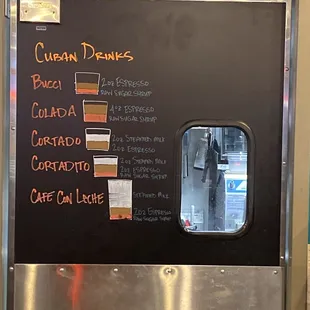 Cuban Drinks
Bucci
2oz Espresso
Raw Sugar Syrup
Colada
4oz Espresso
Raw Sugar Syrup
Cortado
2oz Steamed Milk
2oz Espresso
Cortadito
2oz Steamed Milk
2oz Espresso
Raw Sugar Syrup
Cafe Con Leche
Steamed Milk
2oz Espresso
Raw Sugar Syrup